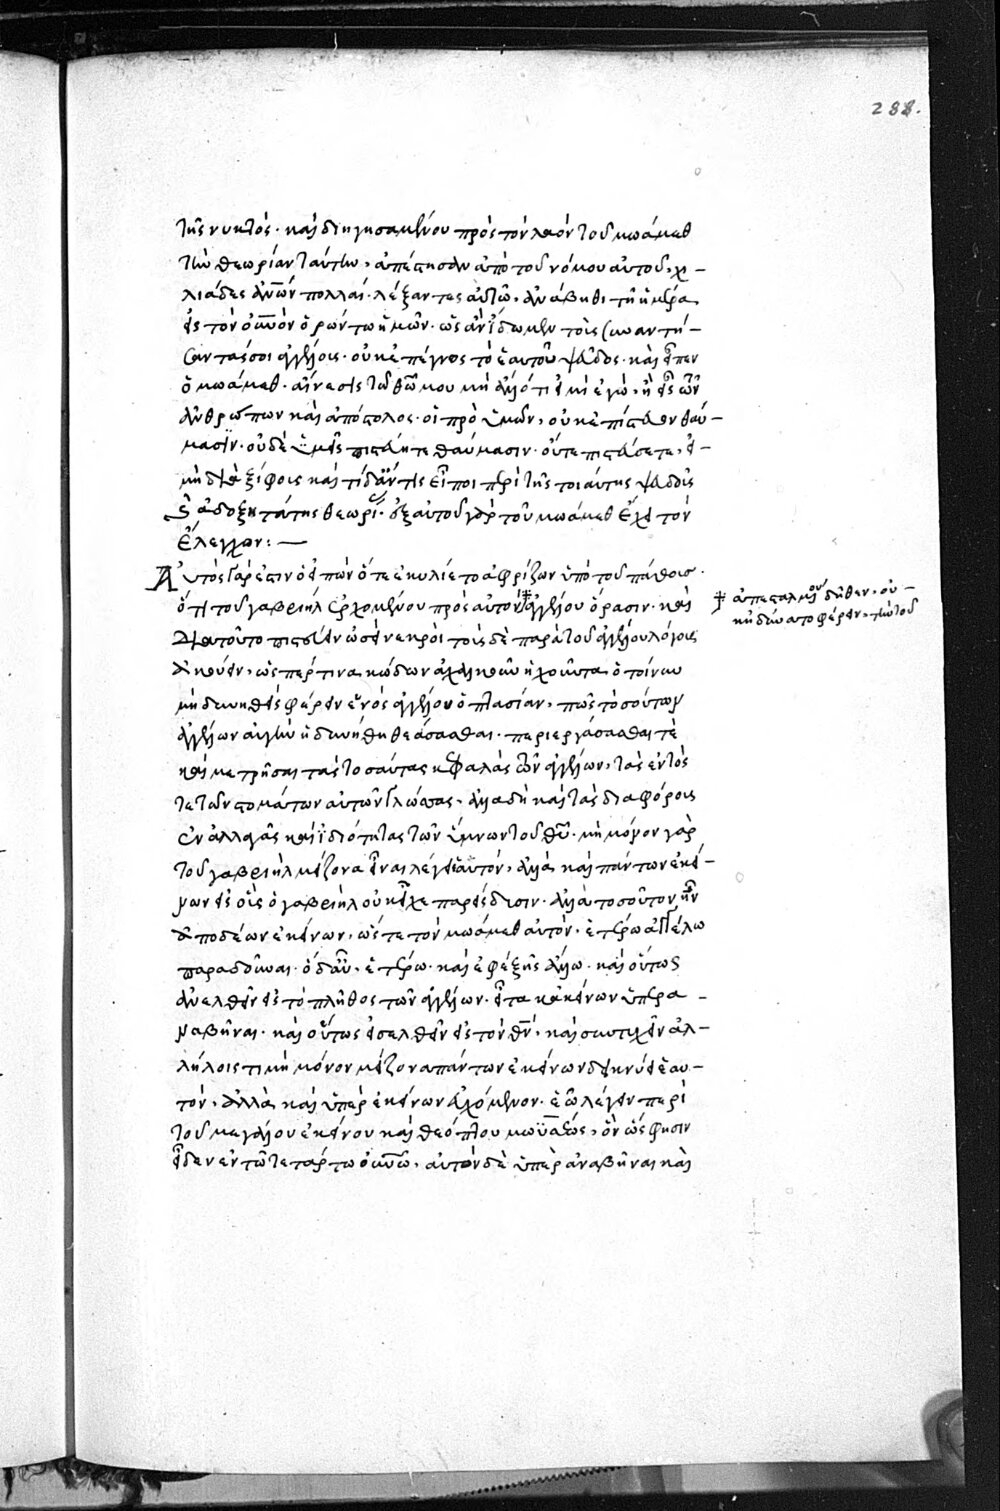 288.
τῆς νυκτός· καὶ διηγησαμένου πρὸς τὸν λαὸν τοῦ μωάμεθ
τὴν θεωρίαν ταύτην, ἀπέστησαν ἀπὸ τοῦ νόμου αὐτοῦ, χι-
λιάδες ἀνων πολλαί· λέξαντες αὐτῶ, ἀνάβηθι τῆ ἡμέρα
εἰς τὸν οὐνον ὁρώντων ἡμῶν· ὡς ἂν ἴδωμεν τοὺς συναντή-
σαντάς σοι ἀγγέλους· οὐκ ἐπέγνω τὸ ἑαυτοῦ ψεῦδος· καὶ εἶπεν
ὁ μωάμεθ· αἴνεσις τῶ θῶ μου μὴ ἄλλό τι εἰμὶ ἐγὼ, ἢ εἷς τῶν
ἀνθρώπων καὶ ἀπόστολος· οἱ πρὸ ὑμῶν, οὐκ ἐπίστευον θαύ-
μασιν· οὐδὲ ὑμεῖς πιστεύητε θαύμασιν· οὔτε πιστεύσετε, εἰ-
μὴ διὰ ξίφους καὶ τί δ' ἄν τις εἴποι περὶ τῆς τοιαύτης ψευδοῦς
καὶ ἀδοξητάτης θεωρίας· ἐξ αὐτοῦ γὰρ τοῦ μωάμεθ ἔχει τὸν
ἔλεγχον:—
Αὐτὸς γάρ ἐστιν ὁ εἰπὼν ὅτε ἐκυλίετο ἀφρίζων ὑπὸ τοῦ πάθους·
ὅτι τοῦ γαβριὴλ ἐρχομένου πρὸς αὐτὸν ἀγγέλου ὅρασιν· καὶ
διατοῦτο πεσεῖν ὡσεὶ νεκρὸς τοὺς δὲ παρὰ τοῦ ἀγγέλου λόγους
ἀκούειν, ὥσπέρ τινα κώδωνα ἠχοῦντα ὁ τοίνυν
μὴ δυνηθεὶς φέρειν ἑνὸς ἀγγέλου ὀπτασίαν, πῶς τοσούτων
ἀγγέλων ἀγέλην ἠδυνήθη θεάσασθαι· περιεργάσασθαι τὲ
καὶ μετρῆσαι τὰς τοσαύτας κεφαλὰς τῶν ἀγγέλων, τὰς ἐντὸς
τε τῶν στομάτων αὐτῶν γλώττας, ἀλλὰ δὴ καὶ τὰς διαφόρους
ἐναλλαγὰς καὶ ἰδιότητας τῶν ὕμνων τοῦ θυ· μὴ μόνον γὰρ
τοῦ γαβριὴλ μείζονα εἶναι λέγει ἑαυτόν, ἀλλὰ καὶ πάντων ἐκεί-
νων εἰς οἷς ὁ γαβριὴλ οὐκ εἶχε παρείσδυσιν· ἀλλὰ τοσοῦτον ἦν
ἀποδέων ἐκείνων, ὥστε τὸν μωάμεθ αὐτὸν, ἑτέρω ἀγγέλω
παραδοῦναι· ὁ δ' αὖ, ἑτέρω· καὶ ἐφεξῆς ἄλλω· καὶ οὕτως
ἀνελθεῖν εἰς τὸ πλῆθος τῶν ἀγγέλων· εἶτα κἀκείνων ὑπερα-
ναβῆναι· καὶ οὕτως εἰσελθεῖν εἰς τὸν θν, καὶ συντυχεῖν ἀλ-
λήλοις τι μὴ μόνον μείζονα πάντων ἐκείνων δεικνύει ἑαυ-
τόν, ἀλλὰ καὶ ὑπὲρ ἐκείνων εὐχόμενον· ἐῶ λέγειν περὶ
τοῦ μεγάλου ἐκείνου καὶ θεόπτου μωϋσέως, ὃν ὥς φησιν
εἶδεν ἐν τῶ τετάρτω οὐνω, αὐτὸν δὲ ὑπεραναβῆναι καὶ
ἀπεσταλμένου δῆθεν, οὐ-
κ ἠδύνατο φέρειν, τὴν τοῦ